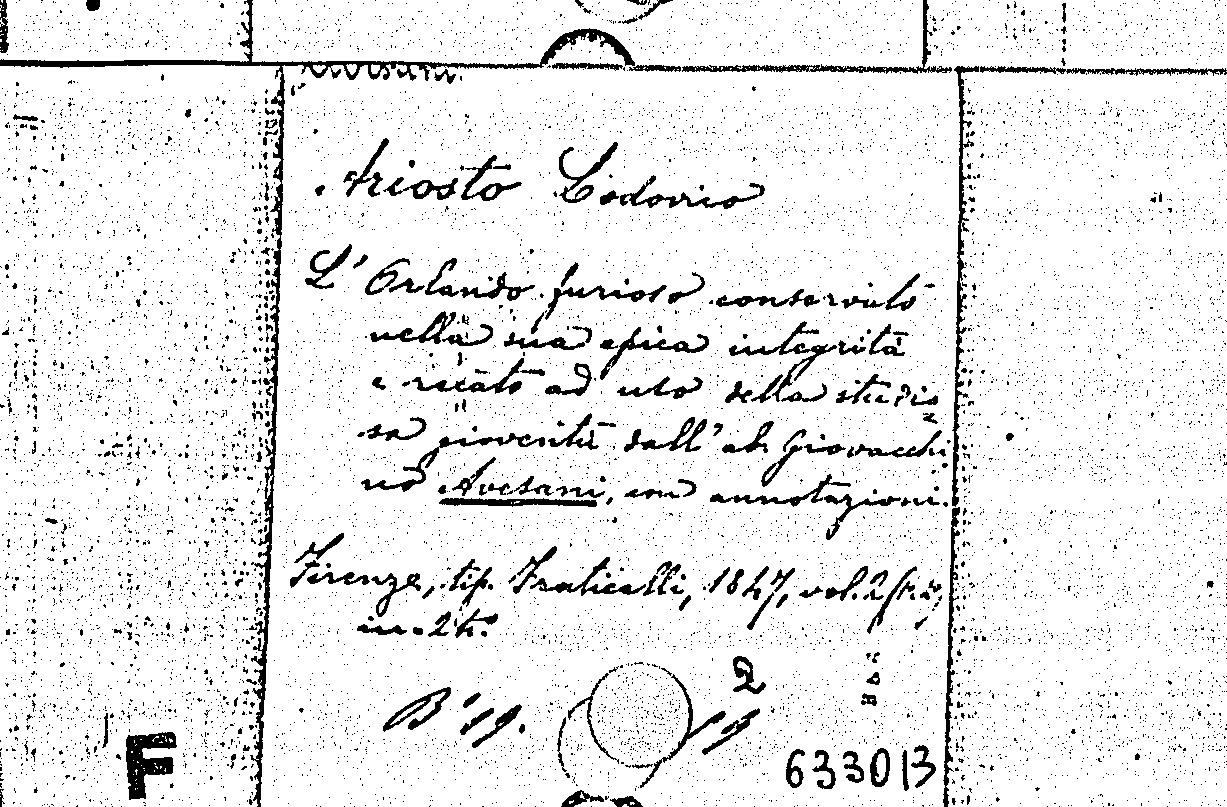 Ariosto Lodovico
L'Orlando furioso conservato
nella sua epica integrità
e recato ad uso della studio=
sa gioventù dall'ab. Giovacchi
no Avesani, con annotazioni.
Firenze, tip. Fraticelli, 1847, vol. 2
in-24.°
B' 19.
2
19
633013
F